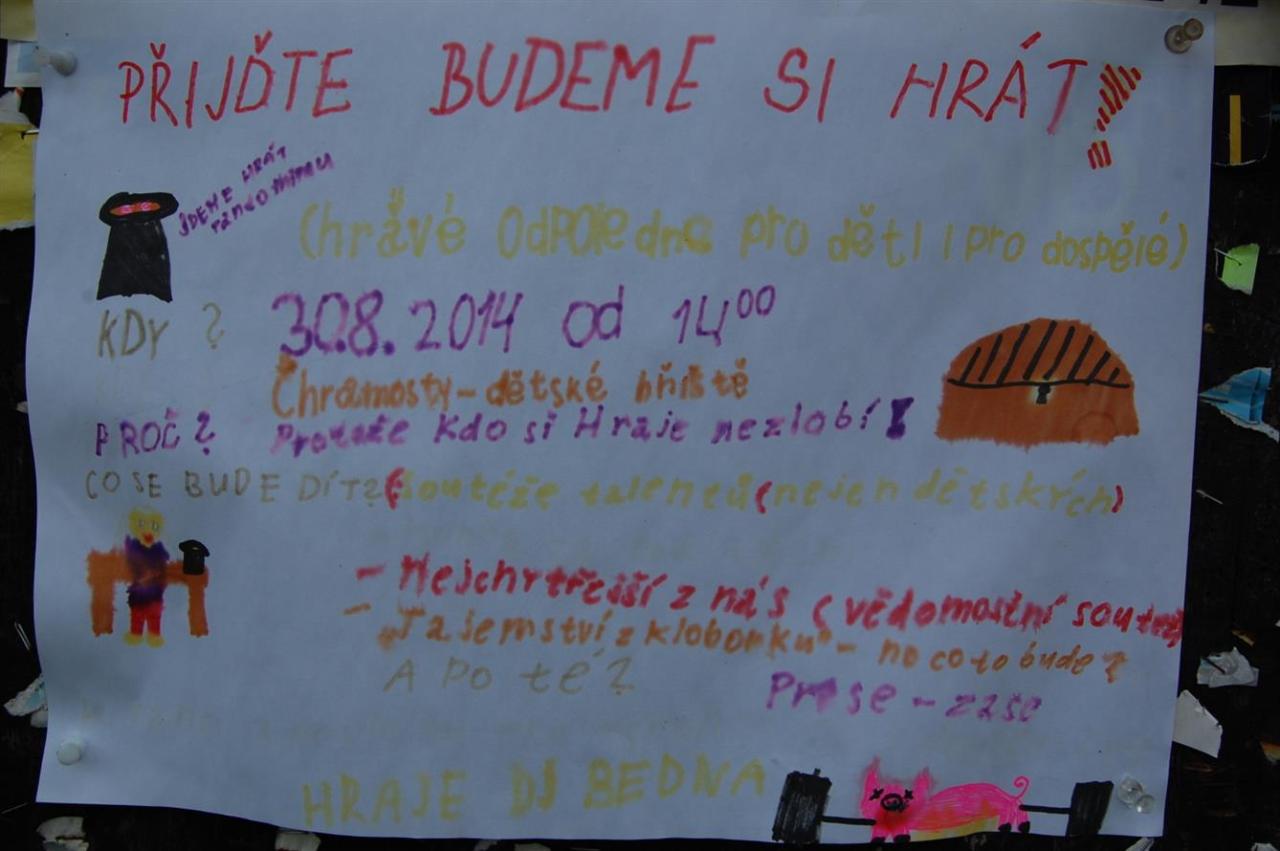 PŘIJĎTE BUDEME SI HRÁT!
JDEME HRÁT
PANTOMIMU
(hrăvé odpoledne pro děti i pro dospělé)
KDY ? 30.8.2014 od 14⁰⁰
Chramosty-dětské hřiště
PROČ? Protože Kdo si Hraje nezlobí!
CO SE BUDE DÍT? (Soutěže talentů (nejen dětských)
- Nejchrtřejší z nás (vědomostní soutěž)
- „Tajemství z klobouku" - no co to bude?
A Po té?
Prase - zase
HRAJE DJ BEDNA